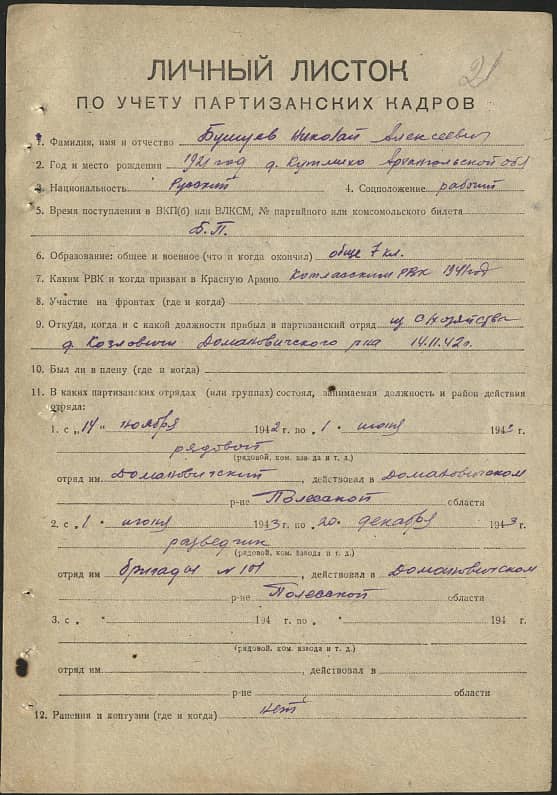 21
ЛИЧНЫЙ ЛИСТОК
ПО УЧЕТУ ПАРТИЗАНСКИХ КАДРОВ
1. Фамилия, имя и отчество Бушуев Николай Алексеевич
2. Год и место рождения 1921 год д. Архангольской обл
3. Национальность Русский 4. Соцположение рабочий
5. Время поступления в ВКП(б) или ВЛКСМ, № партийного или комсомольского билета
Б.П.
6. Образование: общее и военное (что и когда окончил) обще 7 кл.
7. Каким РВК и когда призван в Красную Армию Котласским РВК 1941 год
8. Участие на фронтах (где и когда)
9. Откуда, когда и с какой должности прибыл и партизанский отряд из с/хозяйства
д. Козловичи Домановичского р-на 14.11.42 г.
10. Был ли в плену (где и когда)
11. В каких партизанских отрядах (или группах) состоял, занимаемая должность и район действия
отряда:
1. с „14" ноября 1942 г. по „1" июня 1943 г.
рядовой
(рядовой, ком. взвода и т. д.)
отряд им. Домановичский, действовал в Домановичском
р-не Полесской области
2. с „1" июня 1943 г. по „20" декабря 1943 г.
разведчик
(рядовой, ком. взвода и т. д.)
отряд им бригады № 101, действовал в Домановичском
р-не Полесской области
3. с „ " 194 г. по „ " 194 г.
(рядовой, ком. взвода и т. д.)
отряд им. , действовал в
р-не области
12. Ранения и контузии (где и когда) нет